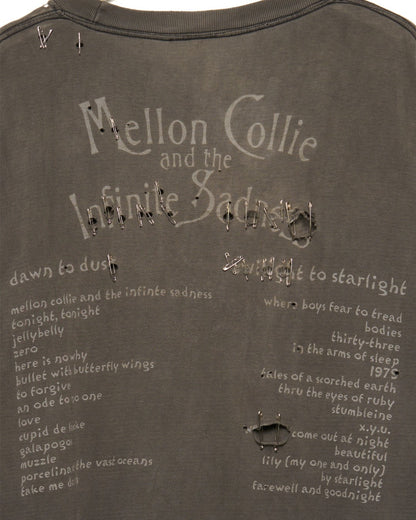 Mellon Collie
and the
Infinite Sadness
dawn to dusk
mellon collie and the infinte sadness
tonight, tonight
jellybelly
zero
here is nowhy
bullet with butterfly wings
to forgive
an ode to no one
love
cupid de locke
galapogos
muzzle
porcelina the vast oceans
take me down
twilight to starlight
where boys fear to tread
bodies
thirty-three
in the arms of sleep
1979
tales of a scorched earth
thru the eyes of ruby
stumbleine
x.y.u.
come out at night
beautiful
lily (my one and only)
by starlight
farewell and goodnight